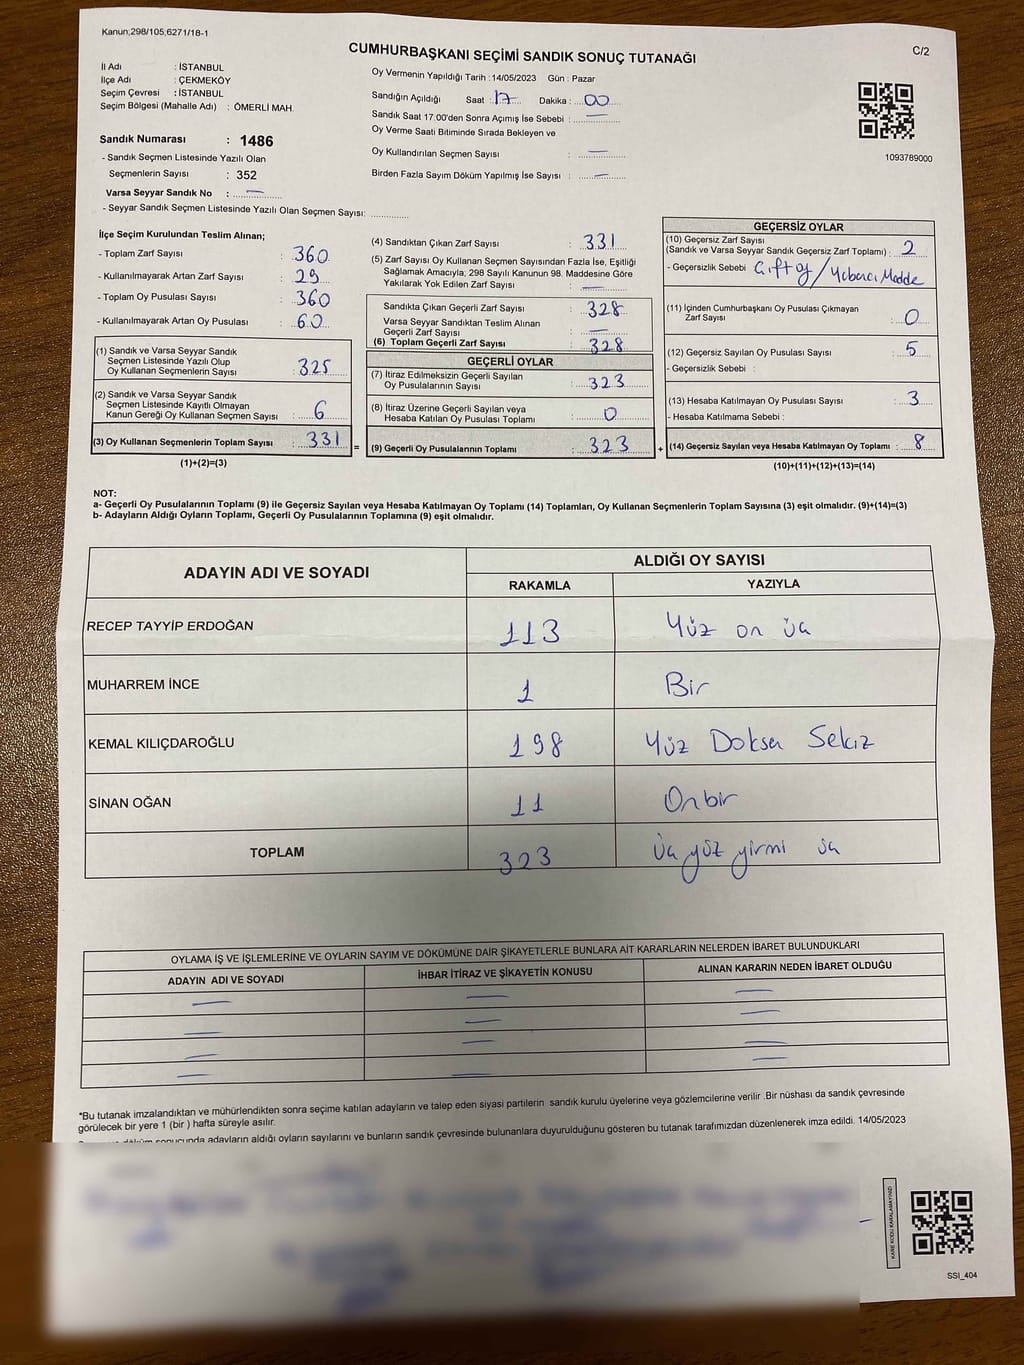 Kanun;298/105;6271/18-1
CUMHURBAŞKANI SEÇİMİ SANDIK SONUÇ TUTANAĞI
C/2
İl Adı : İSTANBUL
İlçe Adı : ÇEKMEKÖY
Seçim Çevresi : İSTANBUL
Seçim Bölgesi (Mahalle Adı) : ÖMERLİ MAH.
Sandık Numarası : 1486
- Sandık Seçmen Listesinde Yazılı Olan
Seçmenlerin Sayısı : 352
Varsa Seyyar Sandık No :
- Seyyar Sandık Seçmen Listesinde Yazılı Olan Seçmen Sayısı:
Oy Vermenin Yapıldığı Tarih : 14/05/2023 Gün : Pazar
Sandığın Açıldığı Saat : 17 Dakika : 00
Sandık Saat 17:00'den Sonra Açımış İse Sebebi :
Oy Verme Saati Bitiminde Sırada Bekleyen ve
Oy Kullandırılan Seçmen Sayısı :
Birden Fazla Sayım Döküm Yapılmış İse Sayısı :
1093789000
İlçe Seçim Kurulundan Teslim Alınan;
- Toplam Zarf Sayısı : 360
- Kullanılmayarak Artan Zarf Sayısı : 29
- Toplam Oy Pusulası Sayısı : 360
- Kullanılmayarak Artan Oy Pusulası : 60
(1) Sandık ve Varsa Seyyar Sandık
Seçmen Listesinde Yazılı Olup
Oy Kullanan Seçmenlerin Sayısı : 325
(2) Sandık ve Varsa Seyyar Sandık
Seçmen Listesinde Kayıtlı Olmayan
Kanun Gereği Oy Kullanan Seçmen Sayısı : 6
(3) Oy Kullanan Seçmenlerin Toplam Sayısı : 331 =
(1)+(2)=(3)
(4) Sandıktan Çıkan Zarf Sayısı : 331
(5) Zarf Sayısı Oy Kullanan Seçmen Sayısından Fazla İse, Eşitliği
Sağlamak Amacıyla; 298 Sayılı Kanunun 98. Maddesine Göre
Yakılarak Yok Edilen Zarf Sayısı :
Sandıkta Çıkan Geçerli Zarf Sayısı : 328
Varsa Seyyar Sandıktan Teslim Alınan
Geçerli Zarf Sayısı :
(6) Toplam Geçerli Zarf Sayısı : 328
GEÇERLİ OYLAR
(7) İtiraz Edilmeksizin Geçerli Sayılan
Oy Pusulalarının Sayısı : 323
(8) İtiraz Üzerine Geçerli Sayılan veya
Hesaba Katılan Oy Pusulası Toplamı : 0
(9) Geçerli Oy Pusulalarının Toplamı : 323 +
GEÇERSİZ OYLAR
(10) Geçersiz Zarf Sayısı
(Sandık ve Varsa Seyyar Sandık Geçersiz Zarf Toplamı) : 2
- Geçersizlik Sebebi : Çift oy / Yabancı Madde
(11) İçinden Cumhurbaşkanı Oy Pusulası Çıkmayan
Zarf Sayısı : 0
(12) Geçersiz Sayılan Oy Pusulası Sayısı : 5
- Geçersizlik Sebebi :
(13) Hesaba Katılmayan Oy Pusulası Sayısı : 3
- Hesaba Katılmama Sebebi :
(14) Geçersiz Sayılan veya Hesaba Katılmayan Oy Toplamı : 8
(10)+(11)+(12)+(13)=(14)
NOT:
a- Geçerli Oy Pusulalarının Toplamı (9) ile Geçersiz Sayılan veya Hesaba Katılmayan Oy Toplamı (14) Toplamları, Oy Kullanan Seçmenlerin Toplam Sayısına (3) eşit olmalıdır. (9)+(14)=(3)
b- Adayların Aldığı Oyların Toplamı, Geçerli Oy Pusulalarının Toplamına (9) eşit olmalıdır.
ADAYIN ADI VE SOYADI
ALDIĞI OY SAYISI
RAKAMLA YAZIYLA
RECEP TAYYİP ERDOĞAN 113 Yüz on üç
MUHARREM İNCE 1 Bir
KEMAL KILIÇDAROĞLU 198 Yüz Doksan Sekiz
SİNAN OĞAN 11 Onbir
TOPLAM 323 üç yüz yirmi üç
OYLAMA İŞ VE İŞLEMLERİNE VE OYLARIN SAYIM VE DÖKÜMÜNE DAİR ŞİKAYETLERLE BUNLARA AİT KARARLARIN NELERDEN İBARET BULUNDUKLARI
ADAYIN ADI VE SOYADI İHBAR İTİRAZ VE ŞİKAYETİN KONUSU ALINAN KARARIN NEDEN İBARET OLDUĞU
*Bu tutanak imzalandıktan ve mühürlendikten sonra seçime katılan adayların ve talep eden siyasi partilerin sandık kurulu üyelerine veya gözlemcilerine verilir .Bir nüshası da sandık çevresinde
görülecek bir yere 1 (bir ) hafta süreyle asılır.
döküm sonucunda adayların aldığı oyların sayılarını ve bunların sandık çevresinde bulunanlara duyurulduğunu gösteren bu tutanak tarafımızdan düzenlenerek imza edildi. 14/05/2023
KARE KODU KARALAMAYINIZ!
SSI_404